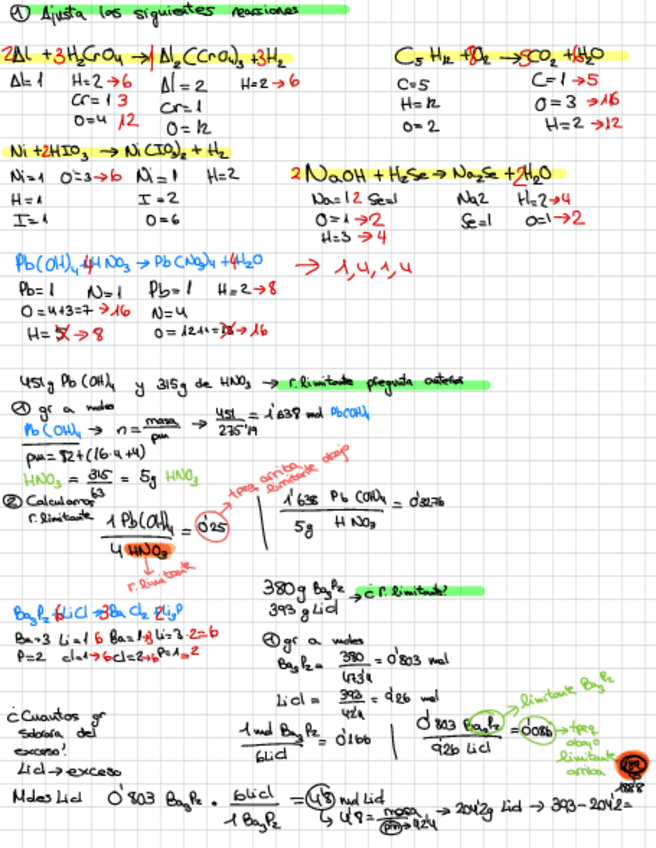 ① Ajusta las siguientes reacciones
2Al + 3H₂CrO₄ → 1Al₂(CrO₄)₃ + 3H₂
Al=1 H=2→6 Al=2 H=2→6
Cr=1 3 Cr=1
O=4 12 O=12
C₅H₁₂ + 8O₂ → 5CO₂ + 6H₂O
C=5 C=1→5
H=12 O=3→16
O=2 H=2→12
Ni + 2HIO₃ → Ni(IO₃)₂ + H₂
Ni=1 O=3→6 Ni=1 H=2
H=1 I=2
I=1 O=6
2NaOH + H₂Se → Na₂Se + 2H₂O
Na=12 Se=1 Na2 H=2→4
O=1→2 Se=1 O=1→2
H=3→4
Pb(OH)₄ + 4HNO₃ → Pb(NO₃)₄ + 4H₂O → 1,4,1,4
Pb=1 N=1 Pb=1 H=2→8
O=4+3=7→16 N=4
H=5→8 O=12+1=13→16
451g Pb(OH)₄ y 315g de HNO₃ → r. limitante pregunta anterior
① gr a moles
Pb(OH)₄ → n = masa/pm → 451/275'19 = 1'638 mol Pb(OH)₄
pm = 82+(16·4+4)
HNO₃ = 315/63 = 5g HNO₃
② Calculamos r. limitante
1 Pb(OH)₄ / 4 HNO₃ = 0'25
→ tpeq arriba limitante abajo
r. limitante
1'638 Pb(OH)₄ / 5g HNO₃ = 0'3276
380g Ba₃P₂ → ¿r. limitante?
393g LiCl
Ba₃P₂ + 6LiCl → 3BaCl₂ + 2Li₃P
Ba=3 Li=1 6 Ba=1→3 Li=3·2=6
P=2 Cl=1→6 Cl=2→6 P=1→2
① gr a moles
Ba₃P₂ = 380/473'4 = 0'803 mol
LiCl = 393/42'4 = 9'26 mol
1 mol Ba₃P₂ / 6LiCl = 0'166
0'803 Ba₃P₂ / 9'26 LiCl = 0'086
→ limitante Ba₃P₂
→ tpeq abajo limitante arriba
¿Cuantos gr sobraría del exceso?
LiCl → exceso
Moles LiCl 0'803 Ba₃P₂ · 6LiCl / 1 Ba₃P₂ = 4'8 mol LiCl
↳ 4'8 = masa / pm → 42'4 → 204'2g LiCl → 393 − 204'2 =
188'8